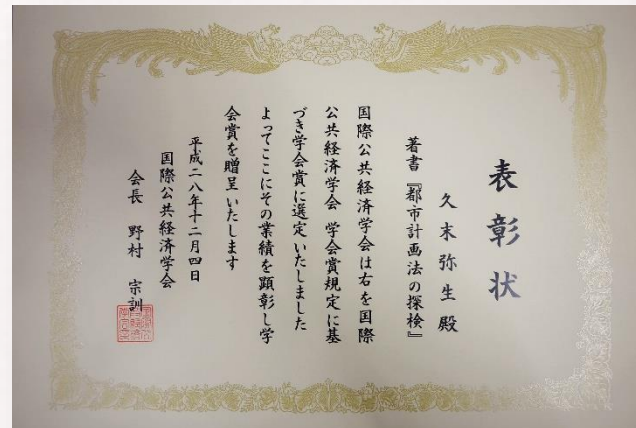 表彰状
久末弥生殿
著書『都市計画法の探検』
国際公共経済学会は右を国際
公共経済学会 学会賞規定に基
づき学会賞に選定いたしました
よってここにその業績を顕彰し学
会賞を贈呈いたします
平成二八年十二月四日
国際公共経済学会
会長 野村 宗訓